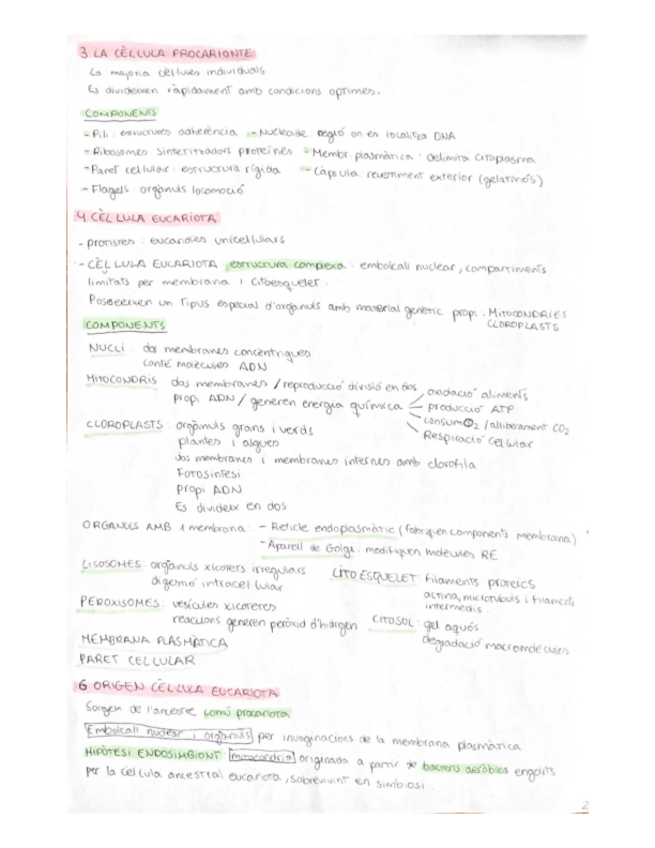 3 LA CÈL·LULA PROCARIONTE
La majoria cèl·lules individuals.
Es divideixen ràpidament amb condicions òptimes.
COMPONENTS
- Pili: estructures adherència - Nucleoide: regió on es localitza DNA
- Ribosomes: sintetitzadors proteïnes - Membr. plasmàtica: delimita citoplasma
- Paret cel·lular: estructura rígida - Càpsula: revestiment exterior (gelatinós)
- Flagels: orgànuls locomoció
4 CÈL·LULA EUCARIOTA
- protistes: eucariotes unicel·lulars
- CÈL·LULA EUCARIOTA estructura complexa: embolcall nuclear, compartiments
limitats per membrana i citoesquelet.
Posseeixen un tipus especial d'orgànuls amb material genètic propi: MITOCONDRIES
CLOROPLASTS
COMPONENTS
NUCLI: dos membranes concentriques
conté molècules ADN
MITOCONDRIS dos membranes / reproducció divisió en dos
propi ADN / generen energia química
oxidació aliments
producció ATP
consum O2 / alliberament CO2
Respiració cel·lular
CLOROPLASTS: orgànuls grans i verds
plantes i algues
dos membranes i membranes internes amb clorofila
Fotosíntesi
Propi ADN
Es divideix en dos
ORGANULS AMB 1 membrana: - Reticle endoplasmàtic (fabriquen components membrana)
- Aparell de Golgi: modifiquen molècules RE
LISOSOMES: orgànuls xicotets irregulars
digestió intracel·lular
CITOESQUELET filaments proteics
actina, microtúbuls i filaments
intermedis.
PEROXISOMES: vesícules xicotetes
reaccions generen peròxid d'hidrogen
CITOSOL: gel aquós
degradació macromolècules
MEMBRANA PLASMÀTICA
PARET CEL·LULAR
6 ORIGEN CÈL·LULA EUCARIOTA
Sorgen de l'ancestre comú procariota
Embolcall nuclear i orgànuls per invaginacions de la membrana plasmàtica
HIPÒTESI ENDOSIMBIONT mitocondria originada a partir de bacteris aeròbics engolits
per la cèl·lula ancestral eucariota, sobrevivint en simbiosi.
2